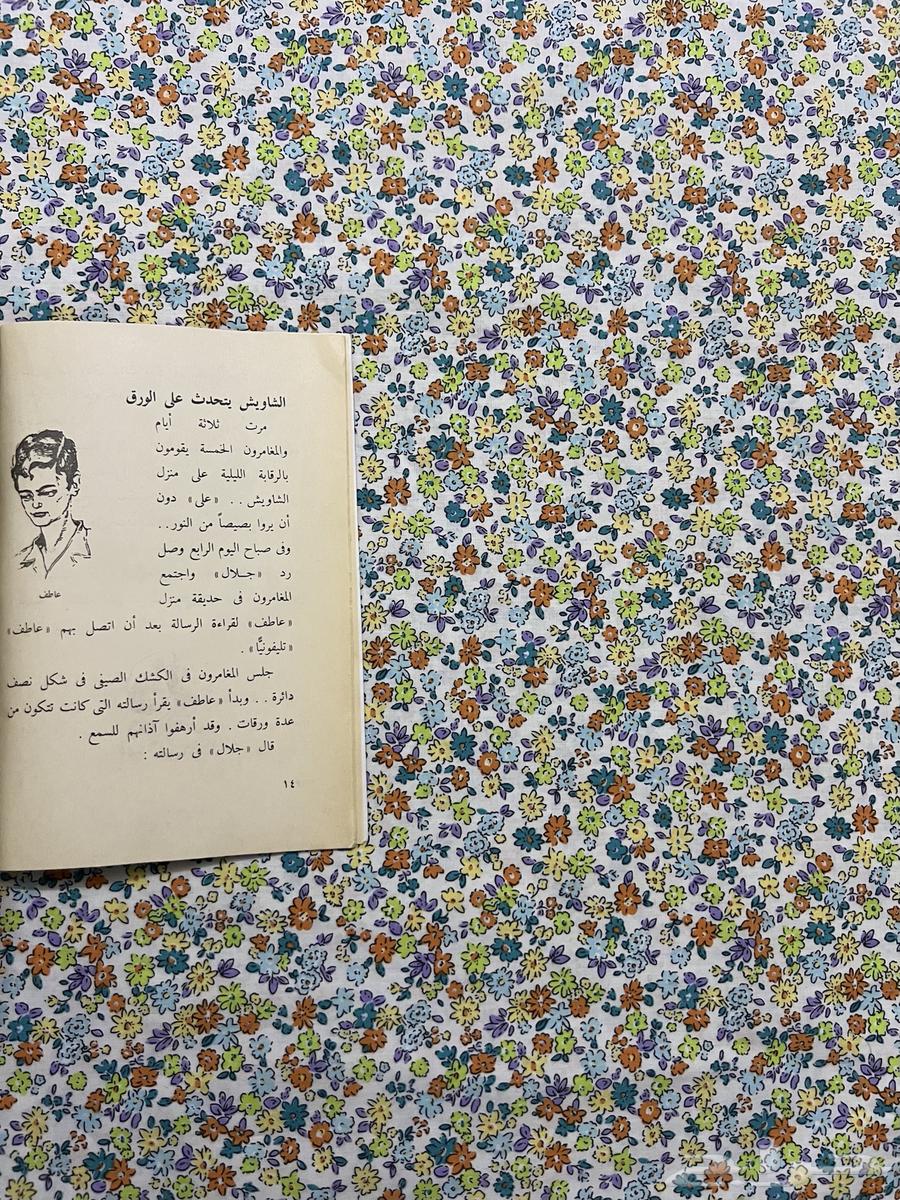 الشاويش يتحدث على الورق
مرت ثلاثة أيام
والمغامرون الخمسة يقومون
بالرقابة الليلية على منزل
الشاويش .. «على» دون
أن يروا بصيصاً من النور ..
وفى صباح اليوم الرابع وصل
رد «جلال» واجتمع
المغامرون فى حديقة منزل
«عاطف» لقراءة الرسالة بعد أن اتصل بهم «عاطف»
«تليفونيًّا» .
جلس المغامرون فى الكشك الصيفى فى شكل نصف
دائرة .. وبدأ «عاطف» يقرأ رسالته التى كانت تتكون من
عدة ورقات . وقد أرهفوا آذانهم للسمع .
قال «جلال» فى رسالته :
عاطف
١٤